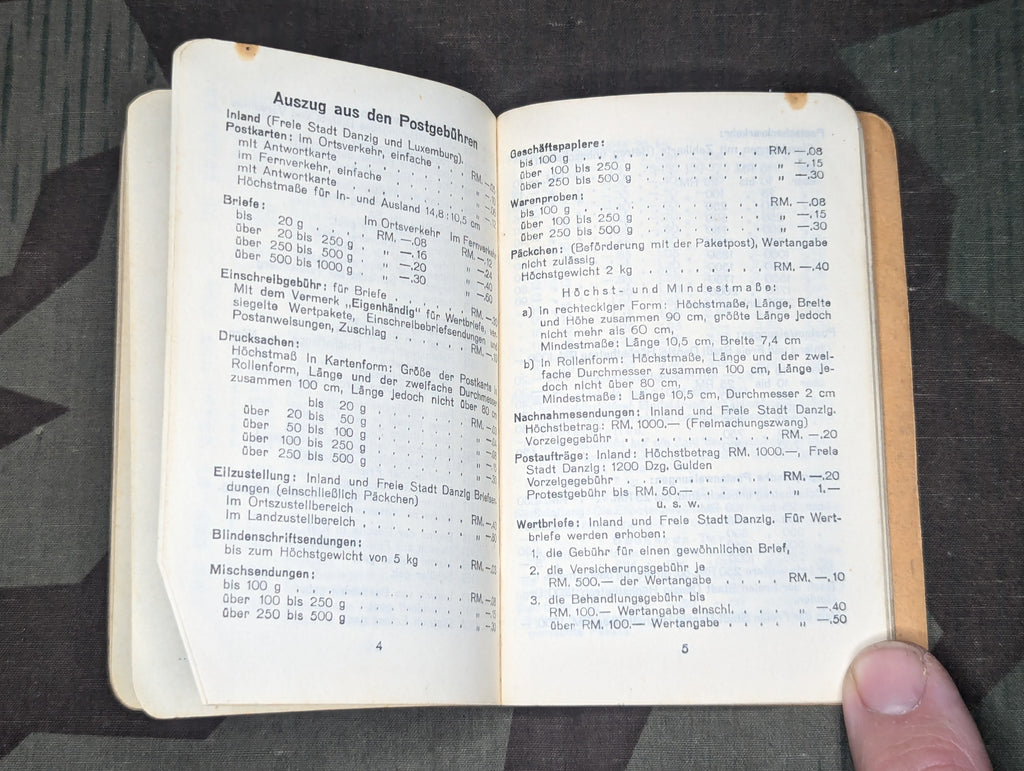 Auszug aus den Postgebühren
Inland (Freie Stadt Danzig und Luxemburg).
Postkarten: im Ortsverkehr, einfache . . . . RM. —.05
mit Antwortkarte . . . . . . „
im Fernverkehr, einfache . . . . . . „
mit Antwortkarte . . . . . . „
Höchstmaße für In- und Ausland 14,8:10,5 cm
Briefe: Im Ortsverkehr Im Fernverkehr
bis 20 g . . . . RM. —.08 RM. —.12
über 20 bis 250 g . . . . „ —.16 „ —.24
über 250 bis 500 g . . . . „ —.20 „ —.40
über 500 bis 1000 g . . . . „ —.30 „ —.60
Einschreibgebühr: für Briefe . . . . . . RM. —.30
Mit dem Vermerk „Eigenhändig" für Wertbriefe, ver-
siegelte Wertpakete, Einschreibebriefsendungen und
Postanweisungen, Zuschlag . . . . . . RM. —.10
Drucksachen:
Höchstmaß in Kartenform: Größe der Postkarte in
Rollenform, Länge und der zweifache Durchmesser
zusammen 100 cm, Länge jedoch nicht über 80 cm
bis 20 g . . . . . . RM. —.03
über 20 bis 50 g . . . . . . „ —.04
über 50 bis 100 g . . . . . . „ —.08
über 100 bis 250 g . . . . . . „ —.15
über 250 bis 500 g . . . . . . „ —.30
Eilzustellung: Inland und Freie Stadt Danzig Briefsen-
dungen (einschließlich Päckchen)
Im Ortszustellbereich . . . . . . RM. —.40
Im Landzustellbereich . . . . . . „ —.80
Blindenschriftsendungen:
bis zum Höchstgewicht von 5 kg . . . . RM. —.03
Mischsendungen:
bis 100 g . . . . . . RM. —.08
über 100 bis 250 g . . . . . . „ —.15
über 250 bis 500 g . . . . . . „ —.30
4
Geschäftspapiere:
bis 100 g . . . . . . RM. —.08
über 100 bis 250 g . . . . . . „ —.15
über 250 bis 500 g . . . . . . „ —.30
Warenproben:
bis 100 g . . . . . . RM. —.08
über 100 bis 250 g . . . . . . „ —.15
über 250 bis 500 g . . . . . . „ —.30
Päckchen: (Beförderung mit der Paketpost), Wertangabe
nicht zulässig
Höchstgewicht 2 kg . . . . . . RM. —.40
Höchst- und Mindestmaße:
a) in rechteckiger Form: Höchstmaße, Länge, Breite
und Höhe zusammen 90 cm, größte Länge jedoch
nicht mehr als 60 cm,
Mindestmaße: Länge 10,5 cm, Breite 7,4 cm
b) in Rollenform: Höchstmaße, Länge und der zwei-
fache Durchmesser zusammen 100 cm, Länge je-
doch nicht über 80 cm,
Mindestmaße: Länge 10,5 cm, Durchmesser 2 cm
Nachnahmesendungen: Inland und Freie Stadt Danzig.
Höchstbetrag: RM. 1000.— (Freimachungszwang)
Vorzeigegebühr . . . . . . RM. —.20
Postaufträge: Inland: Höchstbetrag RM. 1000.—, Freie
Stadt Danzig: 1200 Dzg. Gulden
Vorzeigegebühr . . . . . . RM. —.20
Protestgebühr bis RM. 50.— . . . . . . „ 1.—
u. s. w.
Wertbriefe: Inland und Freie Stadt Danzig. Für Wert-
briefe werden erhoben:
1. die Gebühr für einen gewöhnlichen Brief,
2. die Versicherungsgebühr je
RM. 500.— der Wertangabe . . . . RM. —.10
3. die Behandlungsgebühr bis
RM. 100.— Wertangabe einschl. . . . . „ —.40
über RM. 100.— Wertangabe . . . . „ —.50
5